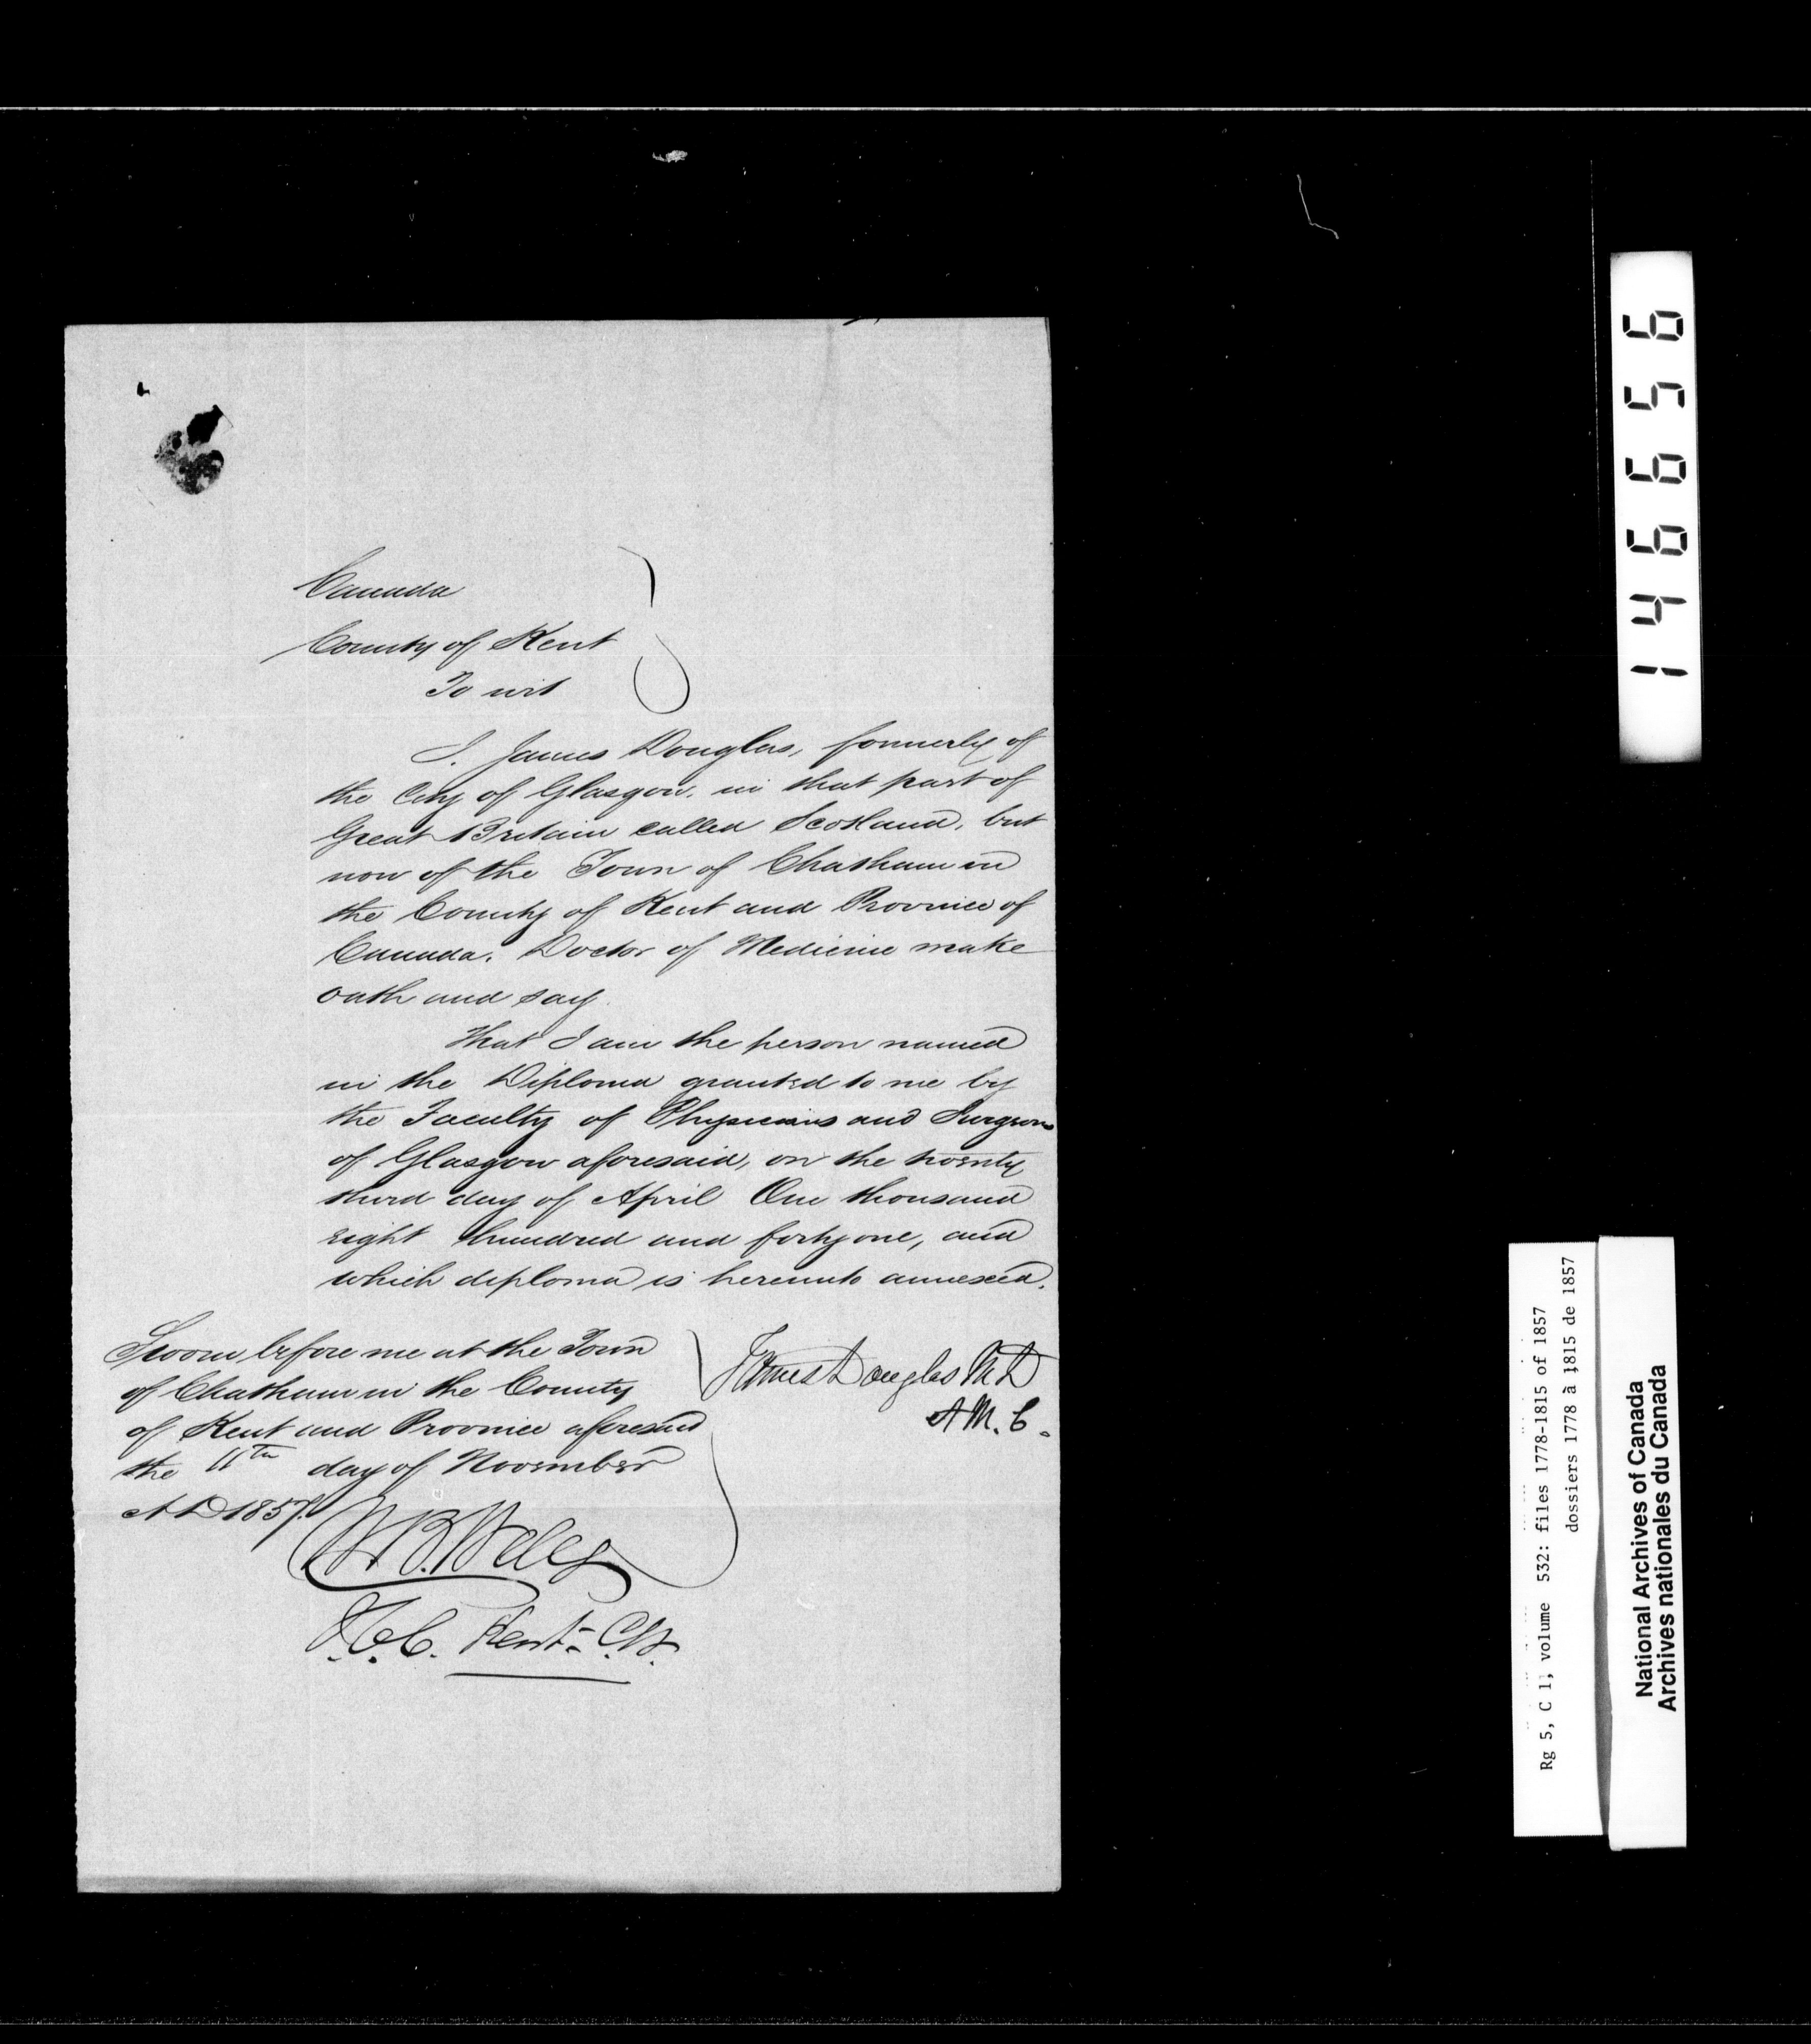 Canada
County of Kent
To wit
I. James Douglas, formerly of
the City of Glasgow. in that part of
Great Britain called Scotland, but
now of the Town of Chatham in
the County of Kent and Province of
Canada. Doctor of Medicine make
oath and say.
That I am the person named
in the Diploma granted to me by
the Faculty of Physicians and Surgeons
of Glasgow aforesaid, on the twenty
third day of April One thousand
eight hundred and forty one, and
which diploma is hereunto annexed.
Sworn before me at the Town
of Chatham in the County
of Kent and Province aforesaid
the 11th day of November
A D 1857.
James Douglas M D
A M. C.
W B. Wells
J. C. C. Kent - C. W.
146656
Rg 5, C 1, volume 532: files 1778-1815 of 1857
dossiers 1778 à 1815 de 1857
National Archives of Canada
Archives nationales du Canada